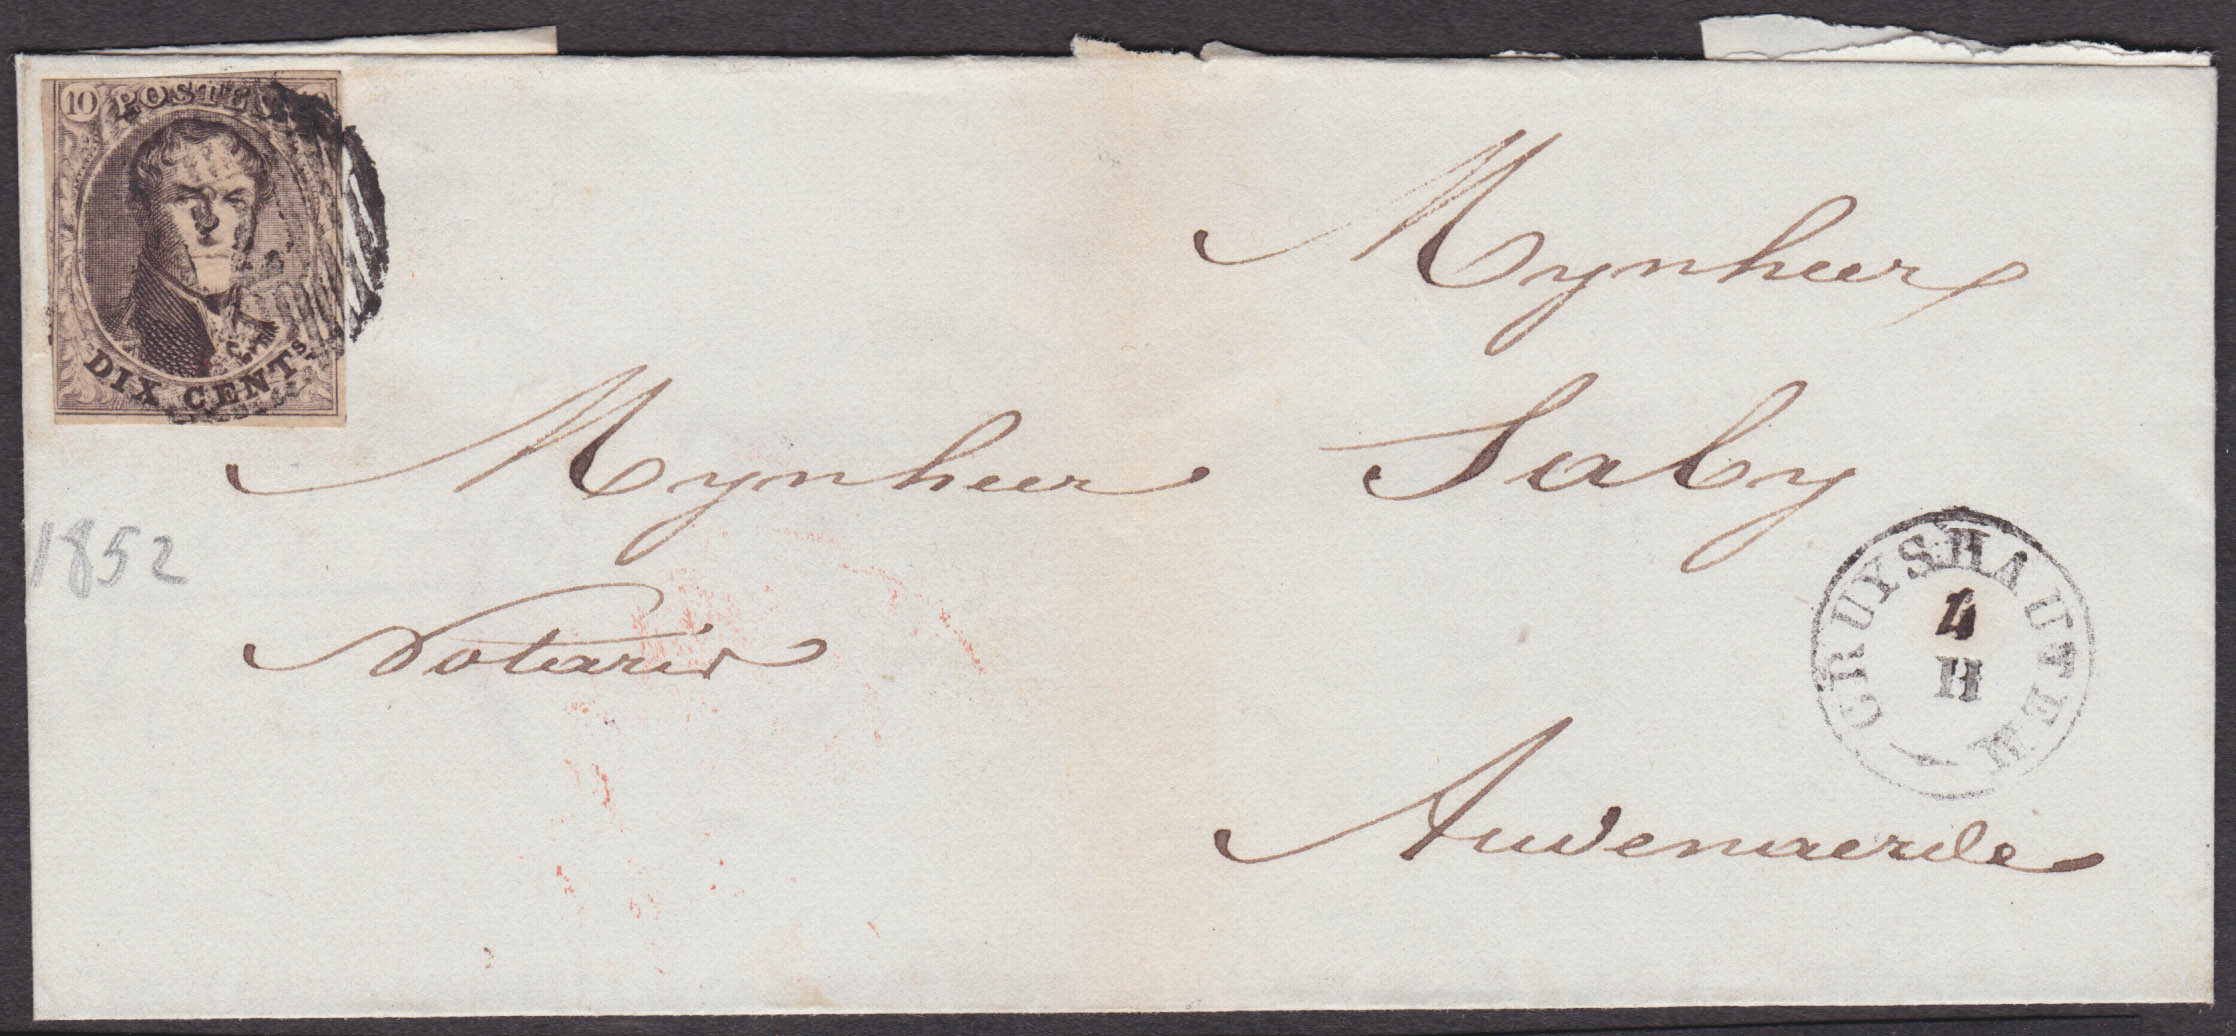 10 POSTES
DIX CENTS.
Mynheer
Mynheer Saby
1852
Notaris
CRUYSHAUTEM
4
H
Audenaerde